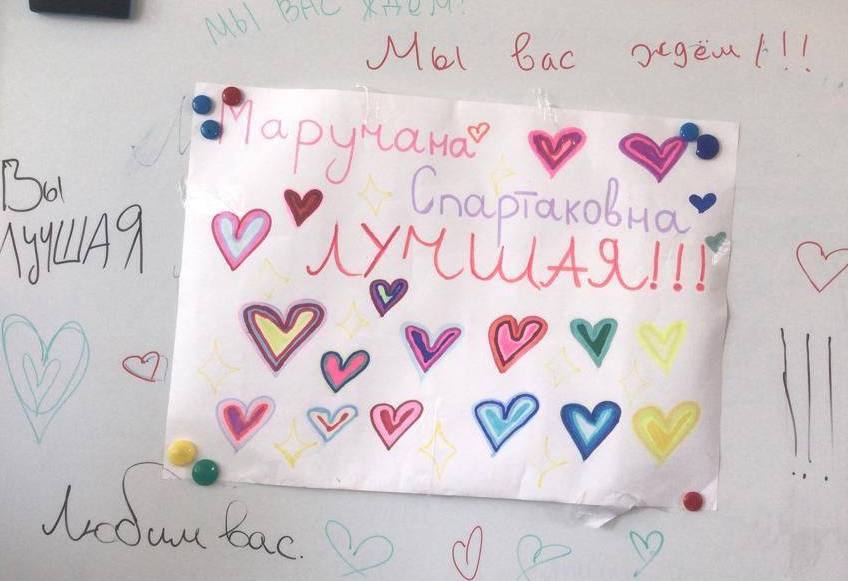 МЫ ВАС ЖДЁМ!
Мы вас ждём!!!
Маручана
Спартаковна
ЛУЧШАЯ!!!
Вы
ЛУЧШАЯ
!!!
Любим вас.